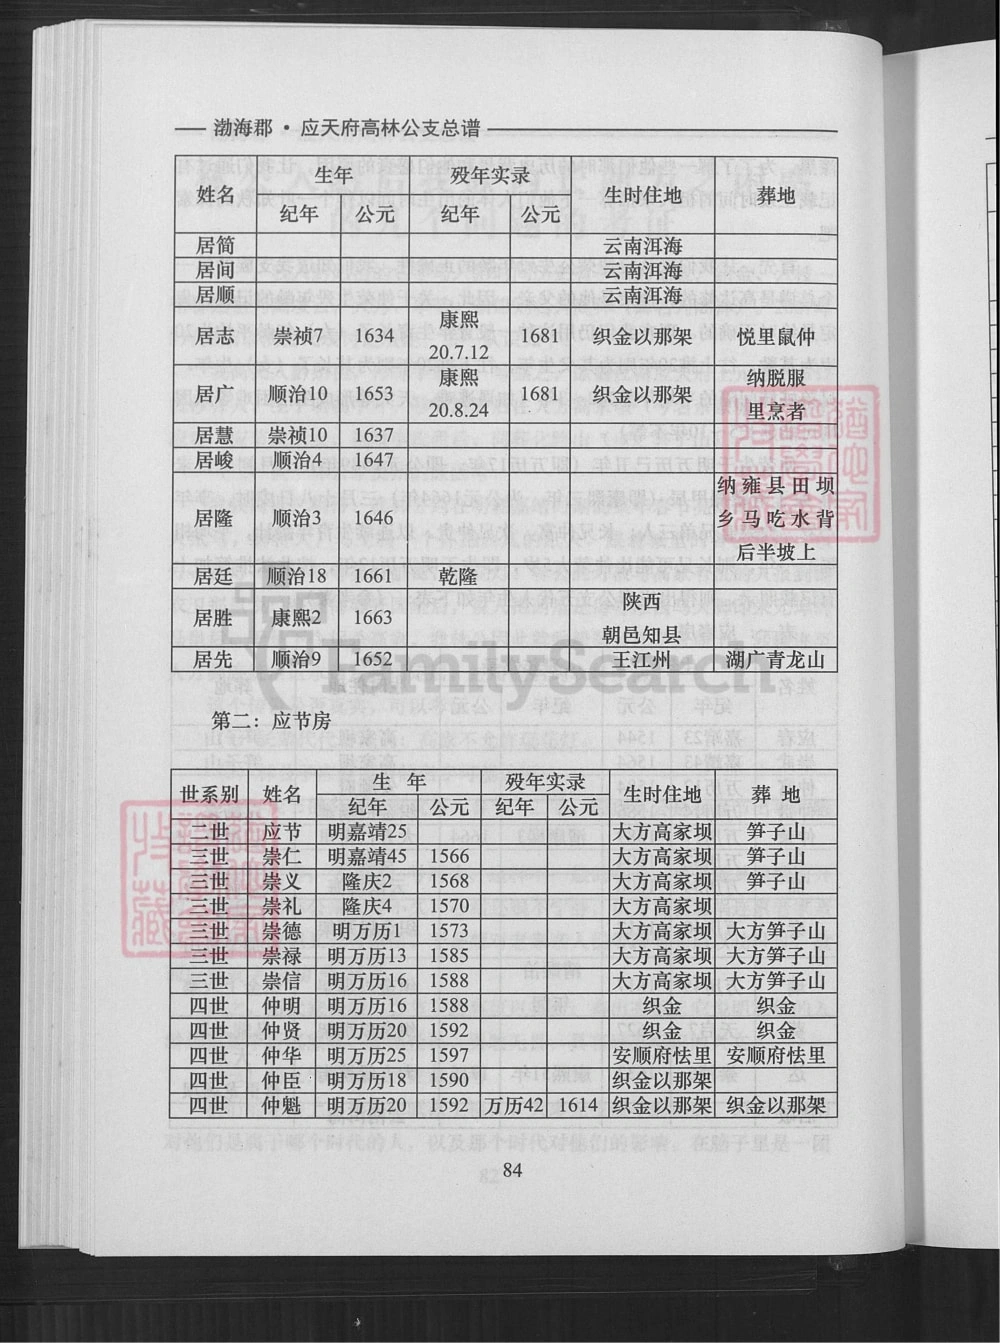 渤海郡·应天府高林公支总谱
姓名 生年 殁年实录 生时住地 葬地
纪年 公元 纪年 公元
居简 云南洱海
居间 云南洱海
居顺 云南洱海
居志 崇祯7 1634 康熙20.7.12 1681 织金以那架 悦里鼠仲
居广 顺治10 1653 康熙20.8.24 1681 织金以那架 纳脱服里烹者
居慧 崇祯10 1637
居峻 顺治4 1647
居隆 顺治3 1646 纳雍县田坝乡马吃水背后半坡上
居廷 顺治18 1661 乾隆
居胜 康熙2 1663 陕西朝邑知县
居先 顺治9 1652 王江州 湖广青龙山
FamilySearch
第二：应节房
世系别 姓名 生年 殁年实录 生时住地 葬地
纪年 公元 纪年 公元
二世 应节 明嘉靖25 大方高家坝 笋子山
三世 崇仁 明嘉靖45 1566 大方高家坝 笋子山
三世 崇义 隆庆2 1568 大方高家坝 笋子山
三世 崇礼 隆庆4 1570 大方高家坝
三世 崇德 明万历1 1573 大方高家坝 大方笋子山
三世 崇禄 明万历13 1585 大方高家坝 大方笋子山
三世 崇信 明万历16 1588 大方高家坝 大方笋子山
四世 仲明 明万历16 1588 织金 织金
四世 仲贤 明万历20 1592 织金 织金
四世 仲华 明万历25 1597 安顺府怯里 安顺府怯里
四世 仲臣 明万历18 1590 织金以那架
四世 仲魁 明万历20 1592 万历42 1614 织金以那架 织金以那架
84